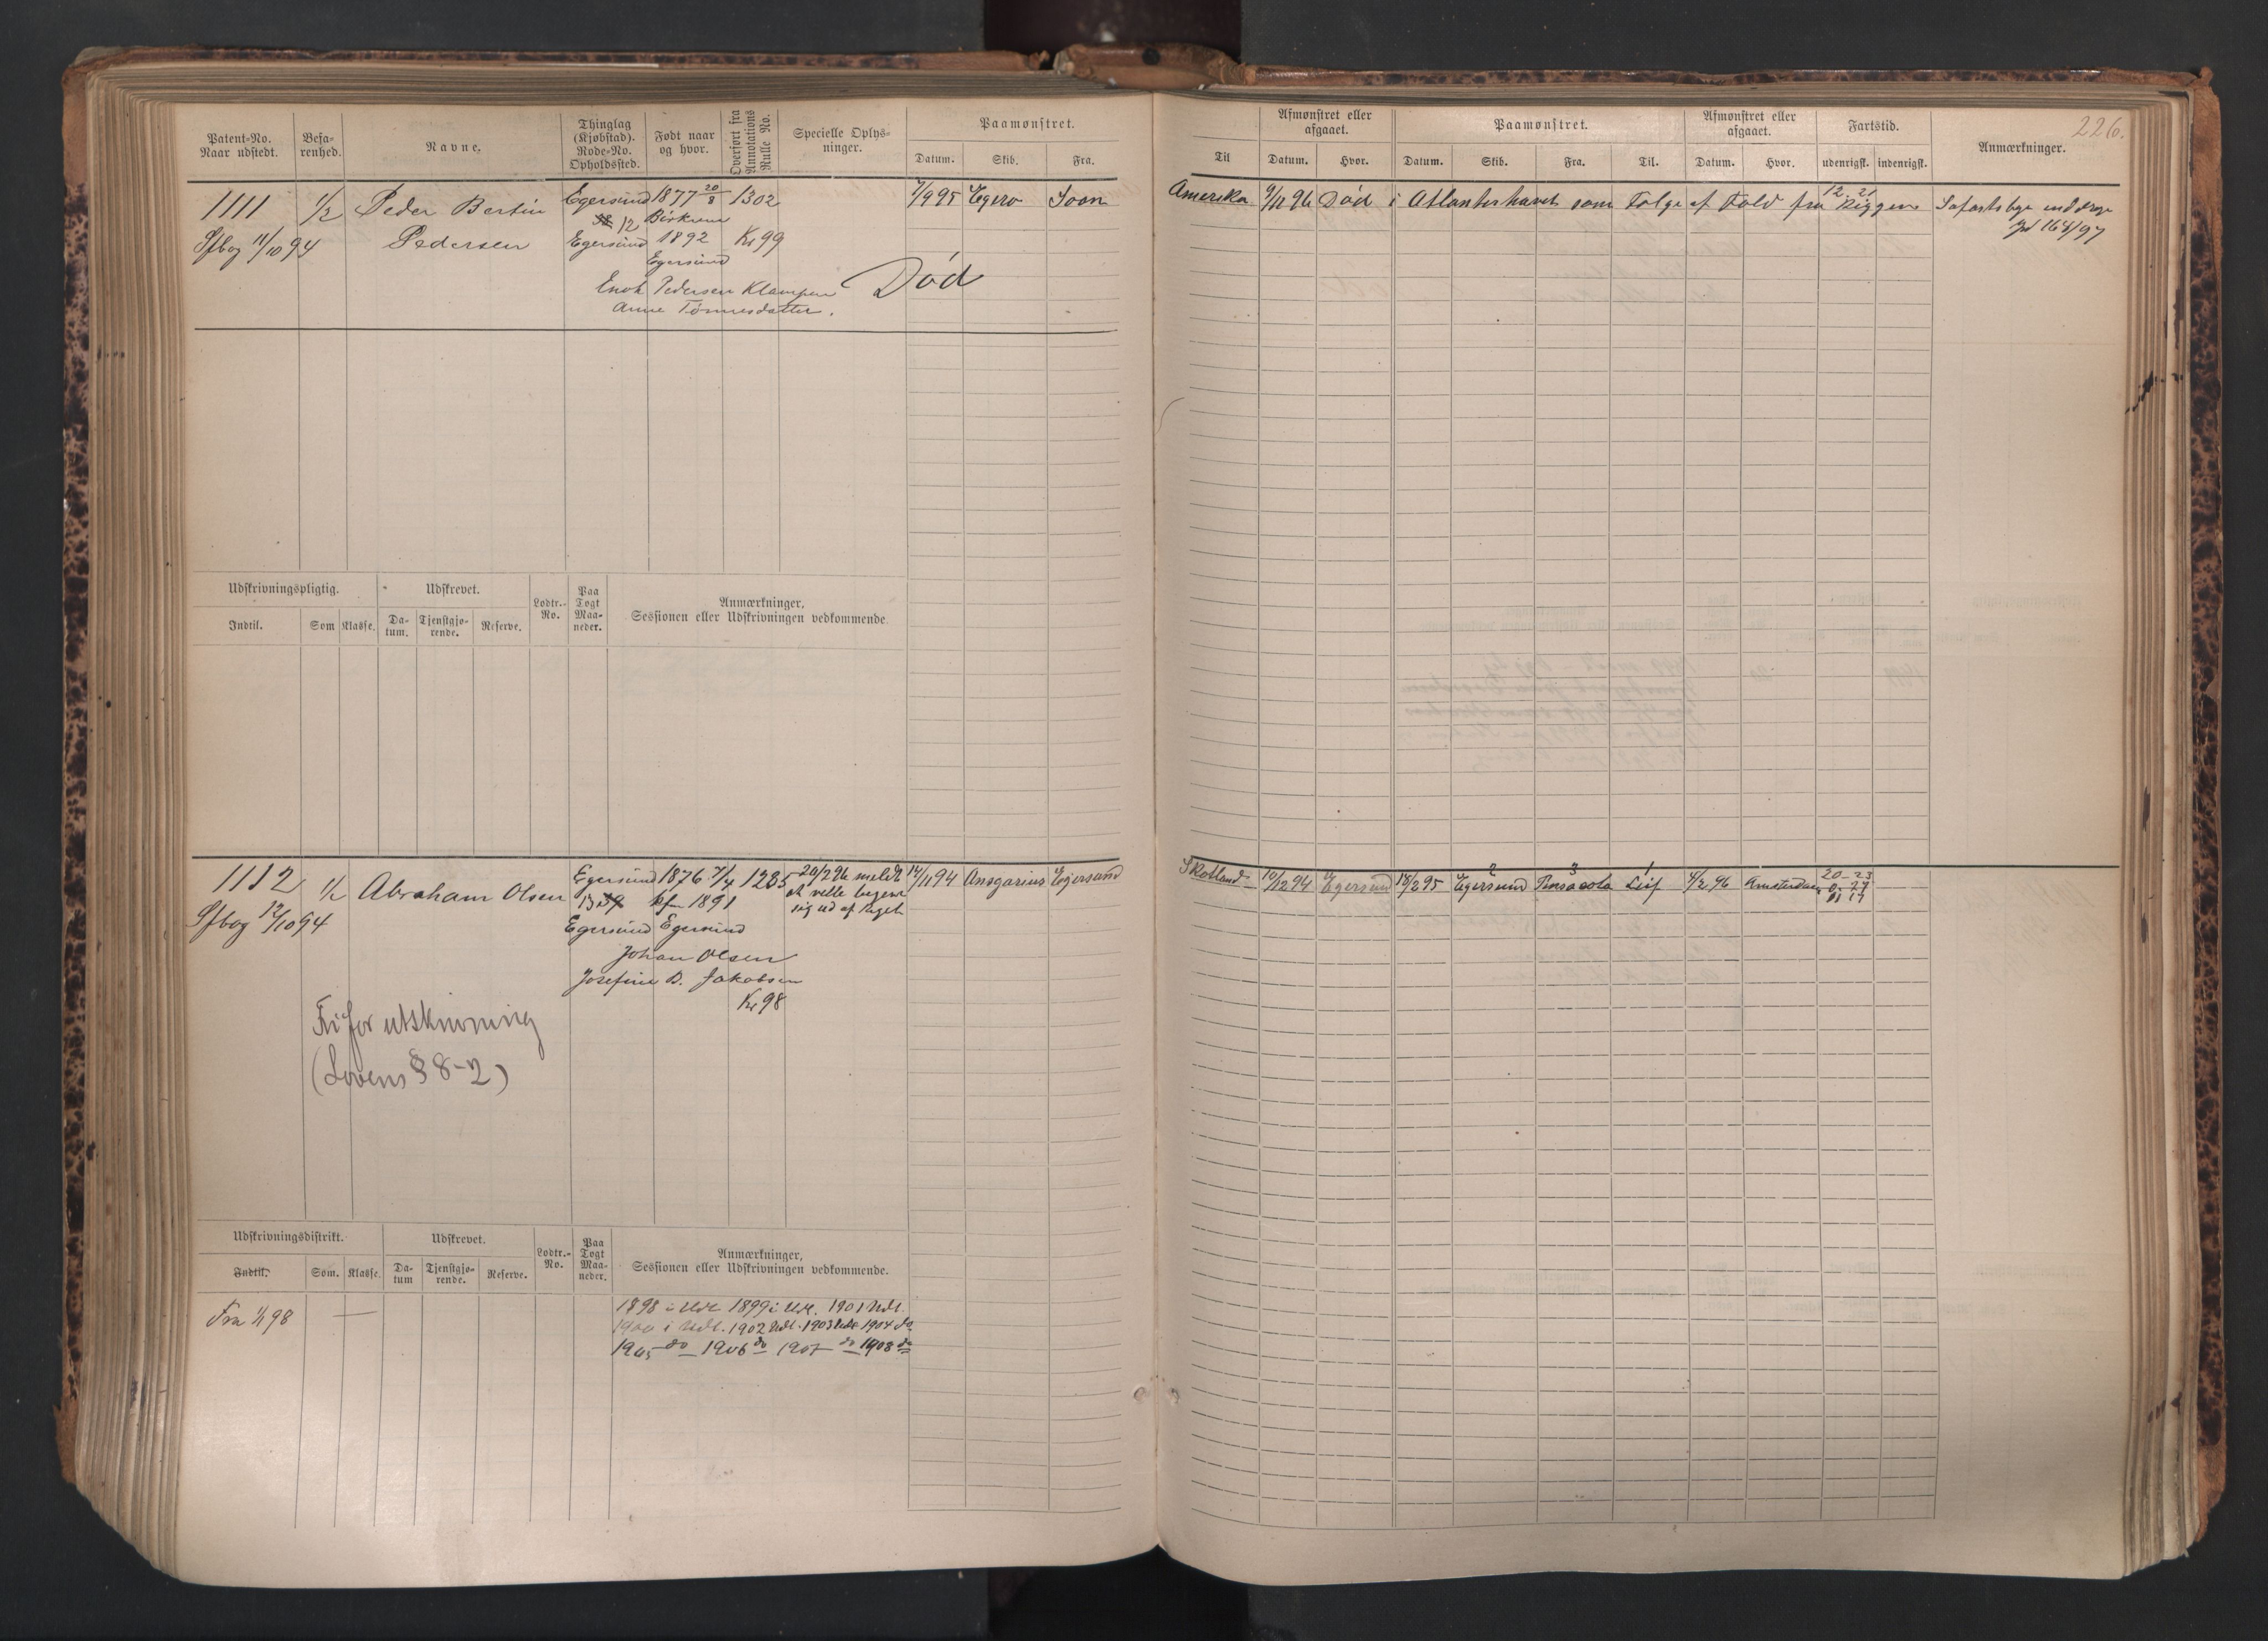 226.
Patent-No. Naar udstedt. Befarenhed. Navne. Thinglag (Kjøbstad). Rode-No. Opholdssted. Født naar og hvor. Overført fra Annotations Rulle No. Specielle Oplysninger. Paamønstret. Datum. Skib. Fra.
Til Afmønstret eller afgaaet. Datum. Hvor. Paamønstret. Datum. Skib. Fra. Til. Afmønstret eller afgaaet. Datum. Hvor. Fartstid. udenrigsk. indenrigsk. Anmærkninger.
1111 1/2 Peder Bertin Egersund 1877 20/8 1302 7/9 95 Egerø Soon
12 Birkrem
Sfbog 11/10 94 Pedersen Egersund 1892 Kr 99
Egersund
Enok Pedersen Klampen Død
Anne Tönnesdatter.
Amerika 9/12 96 Død i Atlanterhavet som Følge af Fald fra Riggen 12 21 Søfartsbog inddrage
Jd 164/97
Udskrivningspligtig. Udskrevet. Lodtr.-No. Paa Togt Maaneder. Anmærkninger, Sessionen eller Udskrivningen vedkommende.
Indtil. Som Klasse. Datum. Tjenstgjørende. Reserve.
1112 1/2 Abraham Olsen Egersund 1876 7/4 1285 20/2 96 meldt 14/11 94 Ansgarius Egersund
13 kf 1891 at ville begive
sig ud af riget
Sfbog 12/10 94 Egersund Egersund
Johan Olsen
Josefine B. Jakobsen
Kr 98
Fri for utskrivning
(Lovens § 8-2)
Skotland 10/12 94 Egersund 18/2 95 Egersund Pensacola Leif 4/2 96 Amsterdam 20 - 23
Udskrivningsdistrikt. Udskrevet. Lodtr.-No. Paa Togt Maaneder. Anmærkninger, Sessionen eller Udskrivningen vedkommende.
Indtil. Som. Klasse. Datum Tjenstgjørende. Reserve.
Fra 1/1 98 1898 i Udl. 1899 i Udl. 1901 Udl.
1900 i Udl. 1902 Udl. 1903 Udl. 1904 do
1905 do 1906 do 1907 do 1908 do